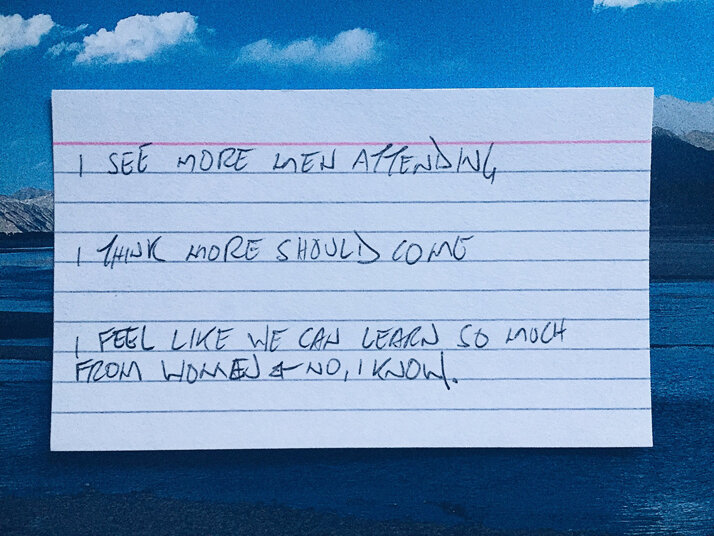 I SEE MORE MEN ATTENDING
I THINK MORE SHOULD COME
I FEEL LIKE WE CAN LEARN SO MUCH
FROM WOMEN & NO, I KNOW.